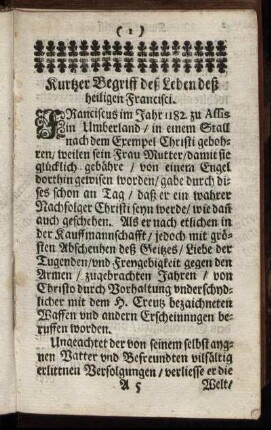 ( 1 )
Kurtzer Begriff deß Leben deß
heiligen Francisci.
FRanciscus im Jahr 1182. zu Assis
in Umberland / in einem Stall
nach dem Exempel Christi gebohren
ren / weilen sein Frau Mutter / damit sie
glücklich gebähre / von einem Engel
dorthin gewisen worden / gabe durch di-
ses schon an Tag / daß er ein wahrer
Nachfolger Christi seyn werde / wie dañ
auch geschehen. Als er nach etlichen in
der Kauffmanschafft / jedoch mit grö-
sten Abscheuhen deß Geitzes / Liebe der
Tugenden / und Freygebigkeit gegen den
Armen / zugebrachten Jahren / von
Christo durch Vorhaltung vnderschyd-
licher mit dem H. Creutz bezaichneten
Waffen vnd andern Erscheinungen be-
ruffen worden.
Ungeachtet der von seinem selbst ayg-
nen Vatter vnd Befreundten vilfältig
erlittnen Verfolgungen / verliesse er die
A 5 Welt /